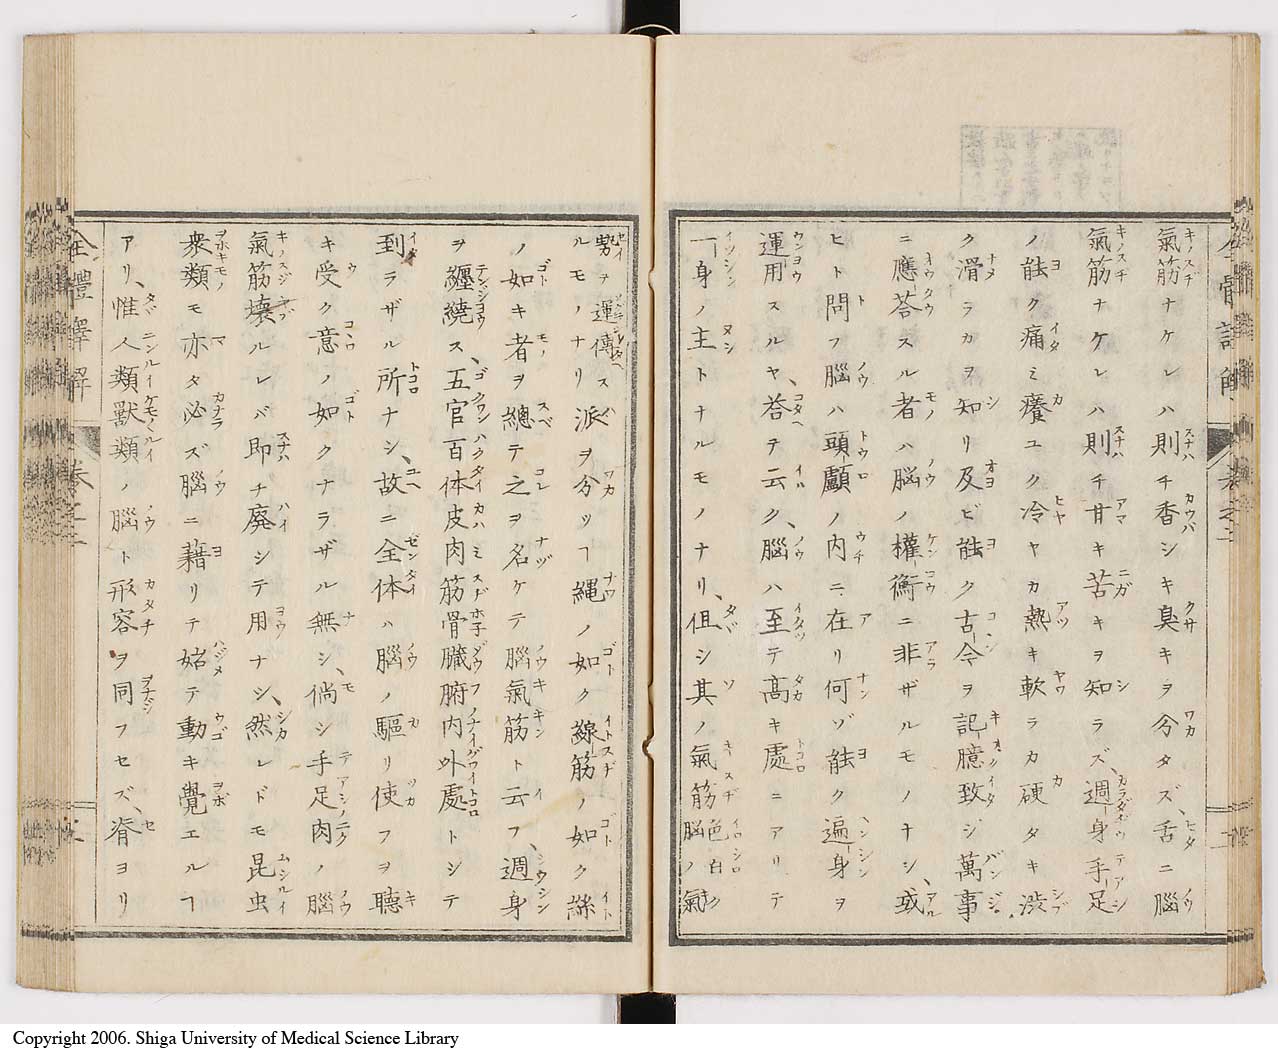 氣筋ナケレハ則チ香シキ臭キヲ分タズ、舌ニ腦
氣筋ナケレハ則チ甘キ苦キヲ知ラズ、週身手足
ノ能ク痛ミ癢ユク冷ヤカ熱キ軟ラカ硬タキ渋
ク滑ラカヲ知リ及ビ能ク古今ヲ記臆致ジ萬事
ニ應荅スル者ハ腦ノ權衡ニ非ザルモノナシ、或
ヒト問フ腦ハ頭顱ノ内ニ在リ何ゾ能ク遍身ヲ
運用スルヤ、荅テ云ク、腦ハ至テ髙キ處ニアリテ
一身ノ主トナルモノナリ、但シ其ノ氣筋色白ク腦ノ氣
勢ヲ運傳ス
ルモノナリ派ヲ分ツヿ縄ノ如ク線筋ノ如ク絲
ノ如キ者ヲ總テ之ヲ名ケテ腦氣筋ト云フ、週身
ヲ纏繞ス、五官百体皮肉筋骨臓腑内外處トシテ
到ラザル所ナシ、故ニ全体ハ腦ノ驅リ使フヲ聴
キ受ク意ノ如クナラザル無シ、倘シ手足肉ノ腦
氣筋壊ルレバ即チ廃シテ用ナシ、然レドモ昆虫
衆類モ亦タ必ズ腦ニ藉リテ始テ動キ覺エルヿ
アリ、惟人類獸類ノ腦ト形容ヲ同フセズ、脊ヨリ
全體譯解 卷之二
Copyright 2006. Shiga University of Medical Science Library